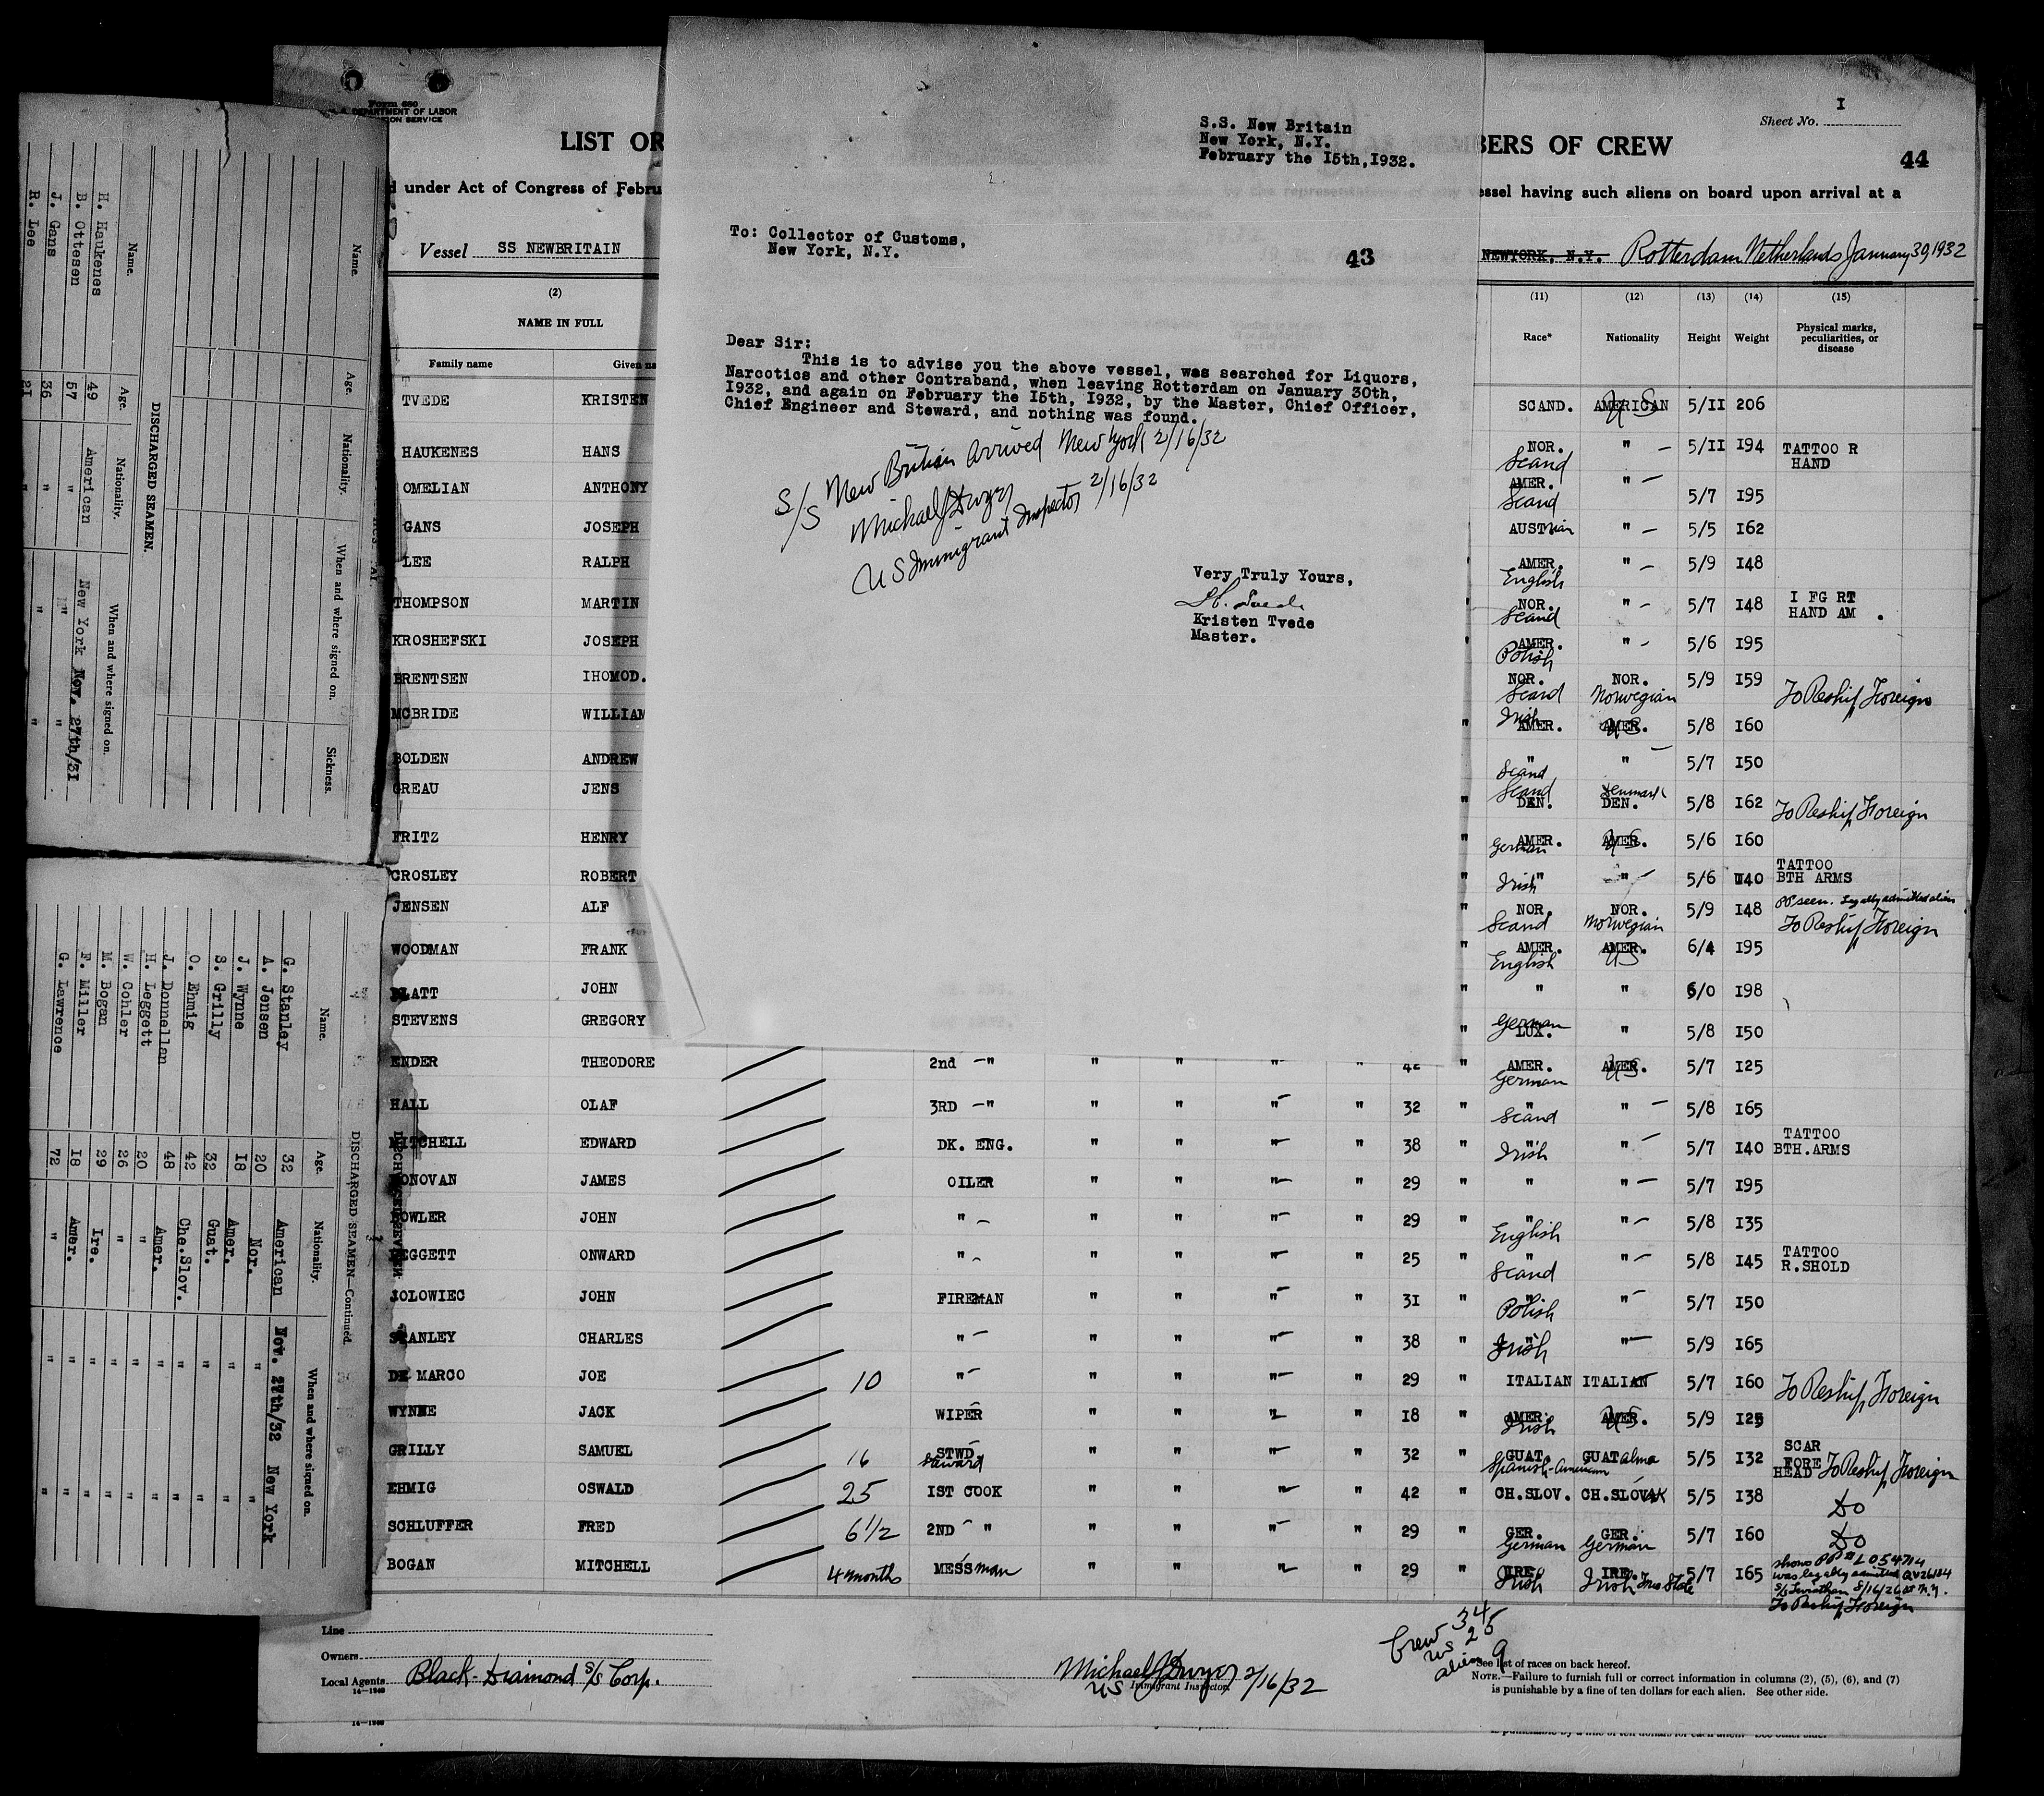 Form 680
DEPARTMENT OF LABOR
ION SERVICE
LIST OR
BERS OF CREW
Sheet No. I
44
under Act of Congress of Febru
essel having such aliens on board upon arrival at a
Vessel SS NEWBRITAIN
NEWYORK, N.Y. Rotterdam Netherlands January 30, 1932
S.S. New Britain
New York, N.Y.
February the I5th, I932.
To: Collector of Customs,
New York, N.Y.
43
Dear Sir:
This is to advise you the above vessel, was searched for Liquors,
Narcotics and other Contraband, when leaving Rotterdam on January 30th,
I932, and again on February the I5th, I932, by the Master, Chief Officer,
Chief Engineer and Steward, and nothing was found.
S/S New Britian Arrived New York 2/16/32
Michael J Dwyer
US Immigrant Inspector 2/16/32
Very Truly Yours,
Kristen Tvede
Master.
(2) (11) (12) (13) (14) (15)
NAME IN FULL
Family name Given na Race* Nationality Height Weight Physical marks, peculiarities, or disease
TVEDE KRISTEN SCAND. AMERICAN US 5/II 206
HAUKENES HANS NOR. Scand " — 5/II I94 TATTOO R HAND
OMELIAN ANTHONY AMER. Scand " — 5/7 I95
GANS JOSEPH AUSTrian " — 5/5 I62
LEE RALPH AMER. English " — 5/9 I48
THOMPSON MARTIN NOR. Scand " — 5/7 I48 I FG RT HAND AM .
KROSHEFSKI JOSEPH AMER. Polish " — 5/6 I95
BRENTSEN IHOMOD. NOR. Scand NOR. Norwegian 5/9 I59 To Reship Foreign
MCBRIDE WILLIAM " Irish AMER. AMER. US 5/8 I60
BOLDEN ANDREW " Scand " — 5/7 I50
GREAU JENS " Scand DEN. Denmark DEN. 5/8 I62 To Reship Foreign
FRITZ HENRY " AMER. German AMER. US 5/6 I60
CROSLEY ROBERT " Irish " " — 5/6 I40 TATTOO BTH ARMS
JENSEN ALF " NOR. Scand NOR. Norwegian 5/9 I48 PP seen. Legally admitted alien To Reship Foreign
WOODMAN FRANK " AMER. English AMER. US 6/4 I95
PLATT JOHN " " " 6/0 I98
STEVENS GREGORY " German LUX. " 5/8 I50
ENDER THEODORE 2nd —" " " " " 42 " AMER. German AMER. US 5/7 I25
HALL OLAF 3RD —" " " " " 32 " " Scand " — 5/8 I65
MITCHELL EDWARD DK. ENG. " " " " 38 " " Irish " — 5/7 I40 TATTOO BTH.ARMS
DONOVAN JAMES OILER " " " " 29 " " " — 5/7 I95
FOWLER JOHN " — " " " " 29 " " English " — 5/8 I35
LEGGETT ONWARD " — " " " " 25 " " Scand " — 5/8 I45 TATTOO R.SHOLD
JOLOWIEC JOHN FIREMAN " " " " 3I " " Polish " — 5/7 I50
STANLEY CHARLES " — " " " " 38 " " Irish " — 5/9 I65
DE MARCO JOE 10 " — " " " " 29 " ITALIAN ITALIAN 5/7 I60 To Reship Foreign
WYNNE JACK WIPER " " " " I8 " AMER. Irish AMER. US 5/9 I25
GRILLY SAMUEL 16 STWD Steward " " " " 32 " GUAT. Spanish-American GUATalma 5/5 I32 SCAR FORE HEAD To Reship Foreign
EHMIG OSWALD 25 IST COOK " " " " 42 " CH.SLOV. CH.SLOVAK 5/5 I38 Do
SCHLUFFER FRED 6 1/2 2ND " " " " " 29 " GER. German GER. German 5/7 I60 Do
BOGAN MITCHELL 4 months MESSman " " " " 29 " IRE. Irish IRE. Irish Free State 5/7 I65 shows PP # L054714
was legally admitted QV26184
S/S Leviathan 8/16/26 at N.Y.
To Reship Foreign
Line
Owners
Local Agents Black Diamond S/S Corp.
14—1240
Michael J Dwyer 2/16/32
US Immigrant Inspector
Crew 34
US 25
alien 9
See list of races on back hereof.
NOTE.—Failure to furnish full or correct information in columns (2), (5), (6), and (7)
is punishable by a fine of ten dollars for each alien. See other side.
Name. Age. Nationality. When and where signed on. Sickness.
DISCHARGED SEAMEN.
Name. Age. Nationality. When and where signed on.
H. Haukenes 49 American New York Nov. 27th/3I
B. Ottesen 57 " " "
J. Gans 36 " "
R. Lee 2I " "
DISCHARGED SEAMEN—Continued.
Name. Age. Nationality. When and where signed on.
G. Stanley 32 American Nov. 27th/32 New York
A. Jensen 20 Nor. " "
J. Wynne I8 Amer. " "
S. Grilly 32 Guat. " "
O. Ehmig 42 Che.Slov. " "
J. Donnellan 48 Amer. " "
H. Leggett 20 " " "
W. Cohler 26 " " "
M. Bogan 29 Ire. " "
F. Miller I8 Amer. " "
G. Lawrence 72 " " "